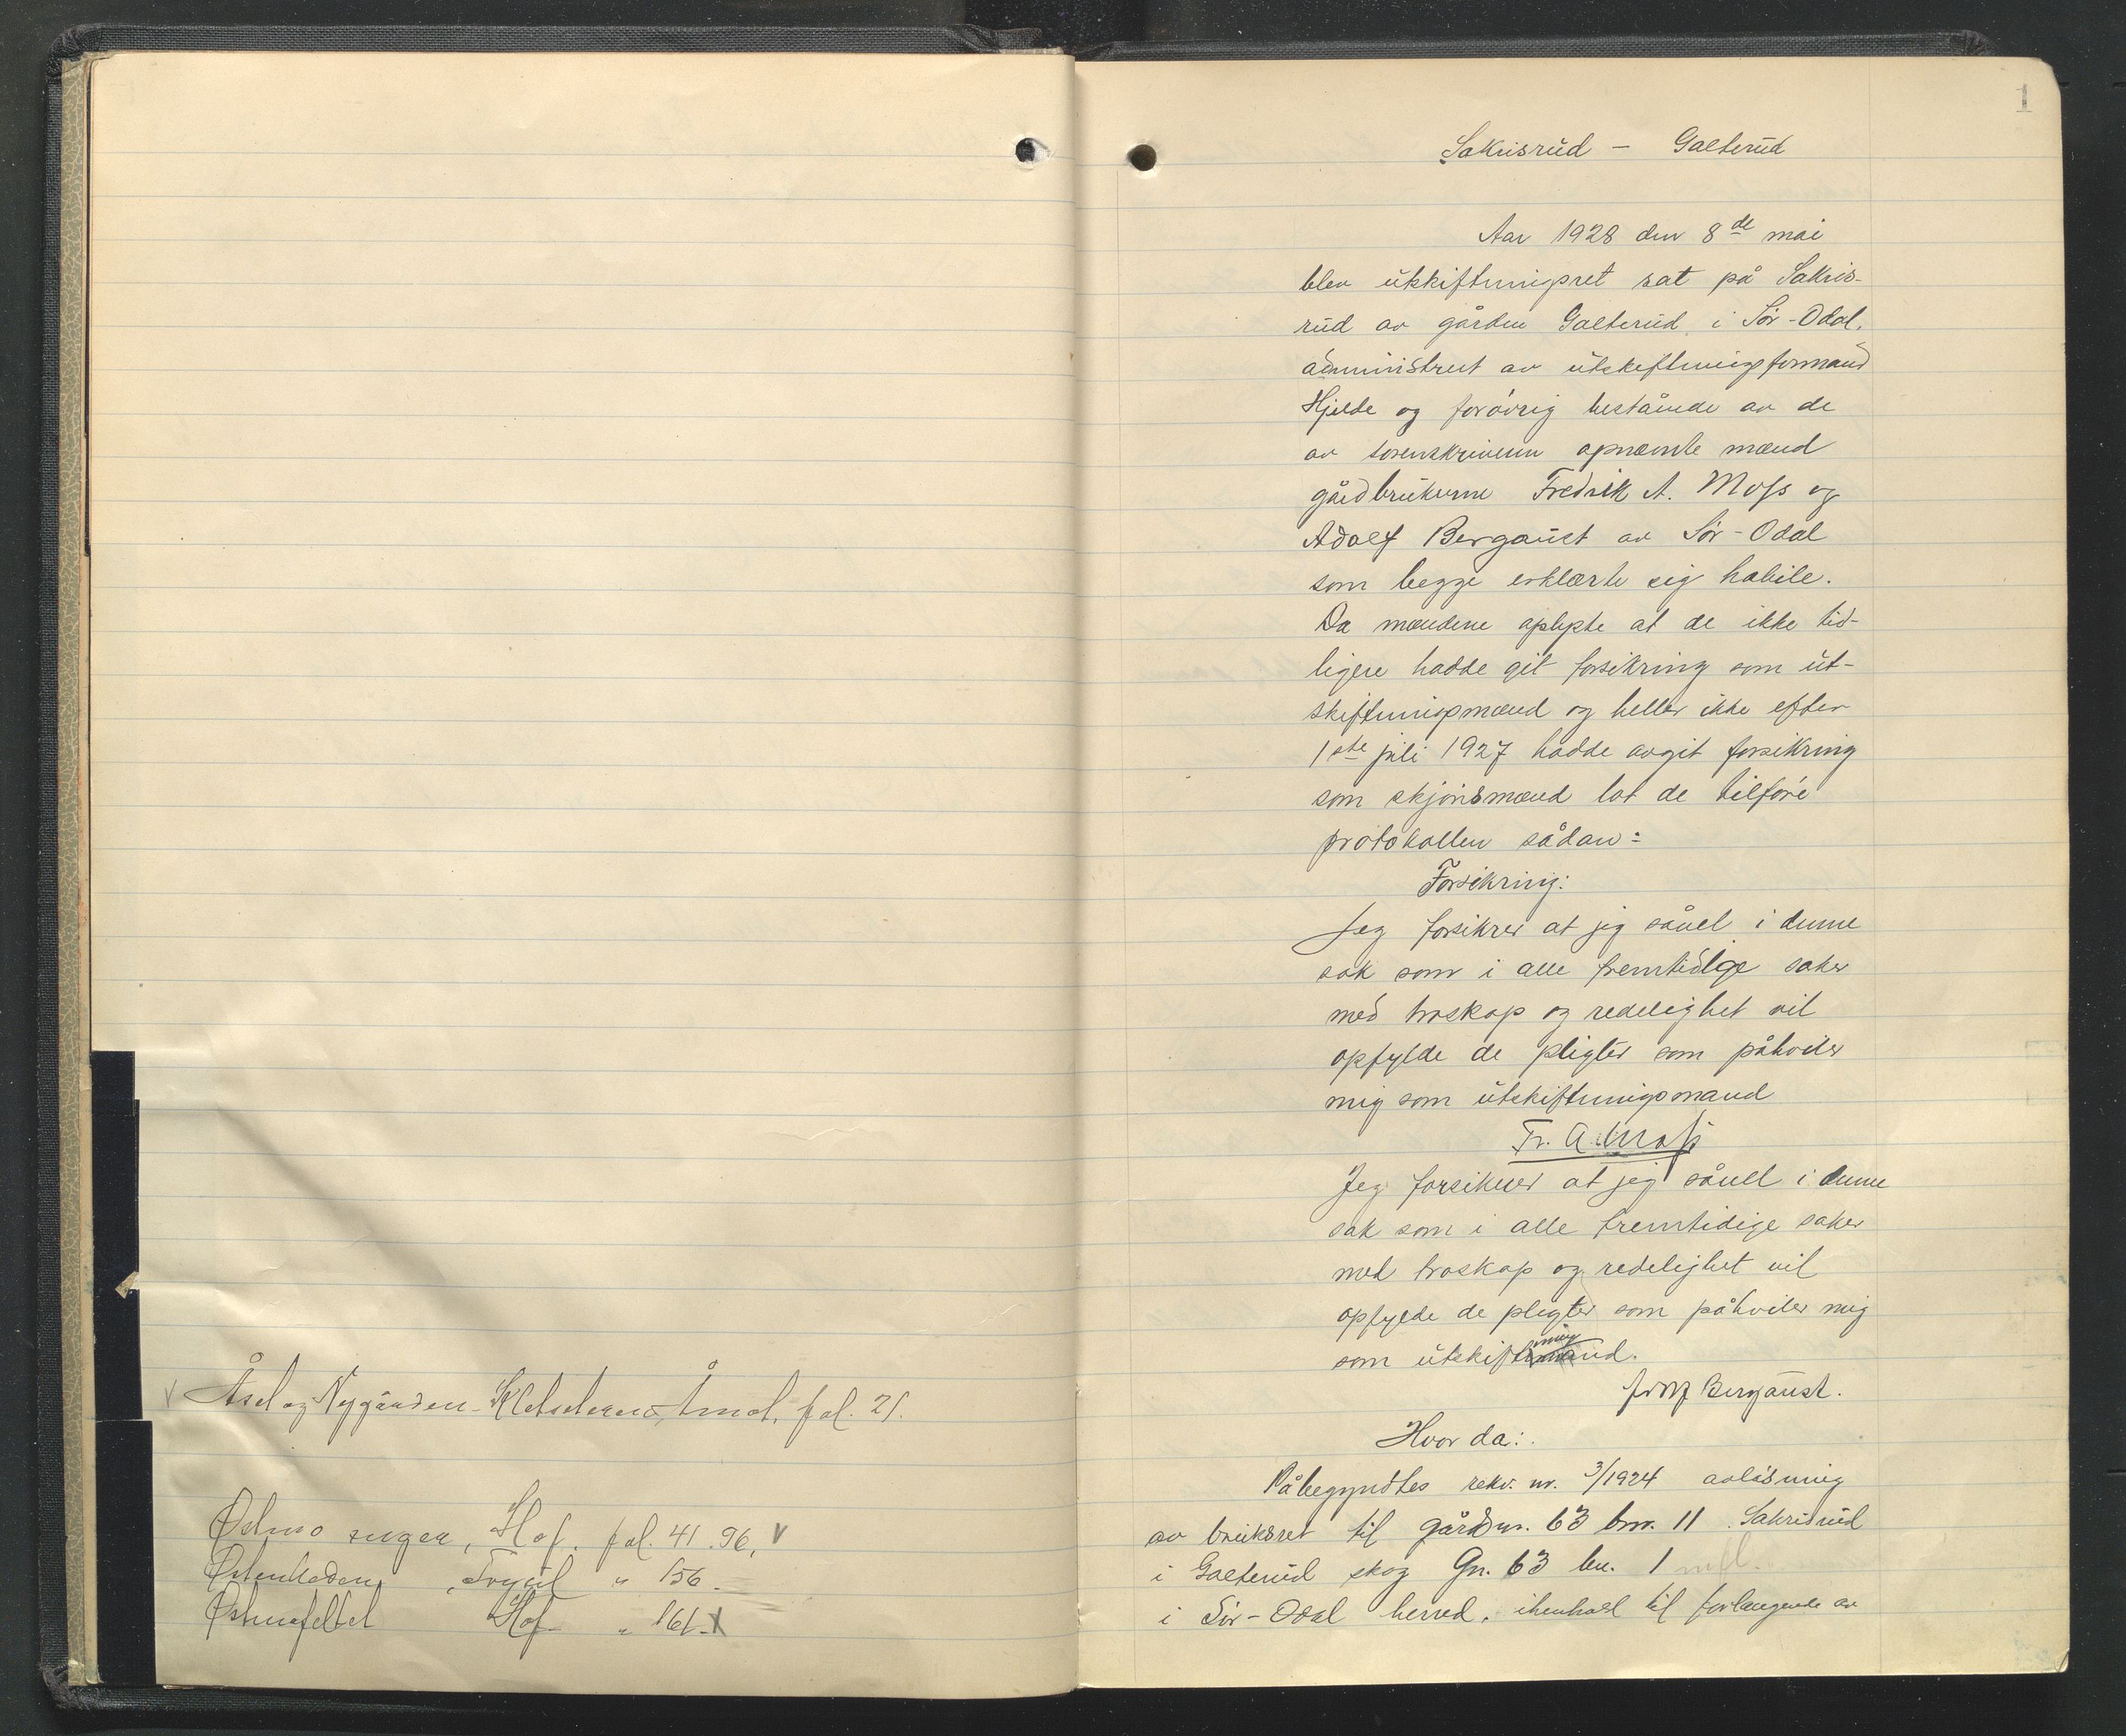 Åsel og Nygården - Kletseteren, Åmot, fol. 21.
Østmo, Hof. fol. 41. 96. V
Østenheden, Trysil " 156.
Østmofeltet Hof " 161.
1
Sakrisrud - Galterud
Aar 1928 den 8de mai
blev utskiftningsret sat på Sakris-
rud av gården Galterud i Sør-Odal,
administrert av utskiftningsformand
Hjelde og forøvrig bestående av de
av sorenskriveren opnævnte mænd
gårdbrukerne Fredrik A. Moss og
Adolf Bergaust av Sør-Odal
som begge erklærte sig habile.
Da mændene oplyste at de ikke tid-
ligere hadde git forsikring som ut-
skiftningsmænd og heller ikke efter
1ste juli 1927 hadde avgit forsikring
som skjønsmænd lot de tilføre
protokollen sådan:
Forsikring:
Jeg forsikrer at jeg såvel i denne
sak som i alle fremtidige saker
med troskap og redelighet vil
opfylde de pligter som påhviler
mig som utskiftningsmand
Fr. A. Moss
Jeg forsikrer at jeg såvel i denne
sak som i alle fremtidige saker
med troskap og redelighet vil
opfylde de pligter som påhviler mig
som utskiftningmand.
Adolf Bergaust.
Hvorda:
Påbegyndtes rekv. nr. 3/1924 avløsning
av bruksret til gårdsnr. 63 bnr. 11 Sakrisrud
i Galterud skog Gn. 63 bn. 1 mfl.
i Sør-Odal herred, ihenhold til forlangende av